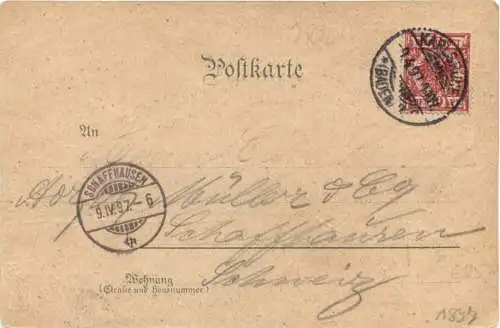 Postkarte
KARLSRUHE
(BADEN)
An
SCHAFFHAUSEN
9.IV.97.-6
Müller & Cg
Schaffhausen
Schweiz
Wohnung
(Straße und Hausnummer)
1897